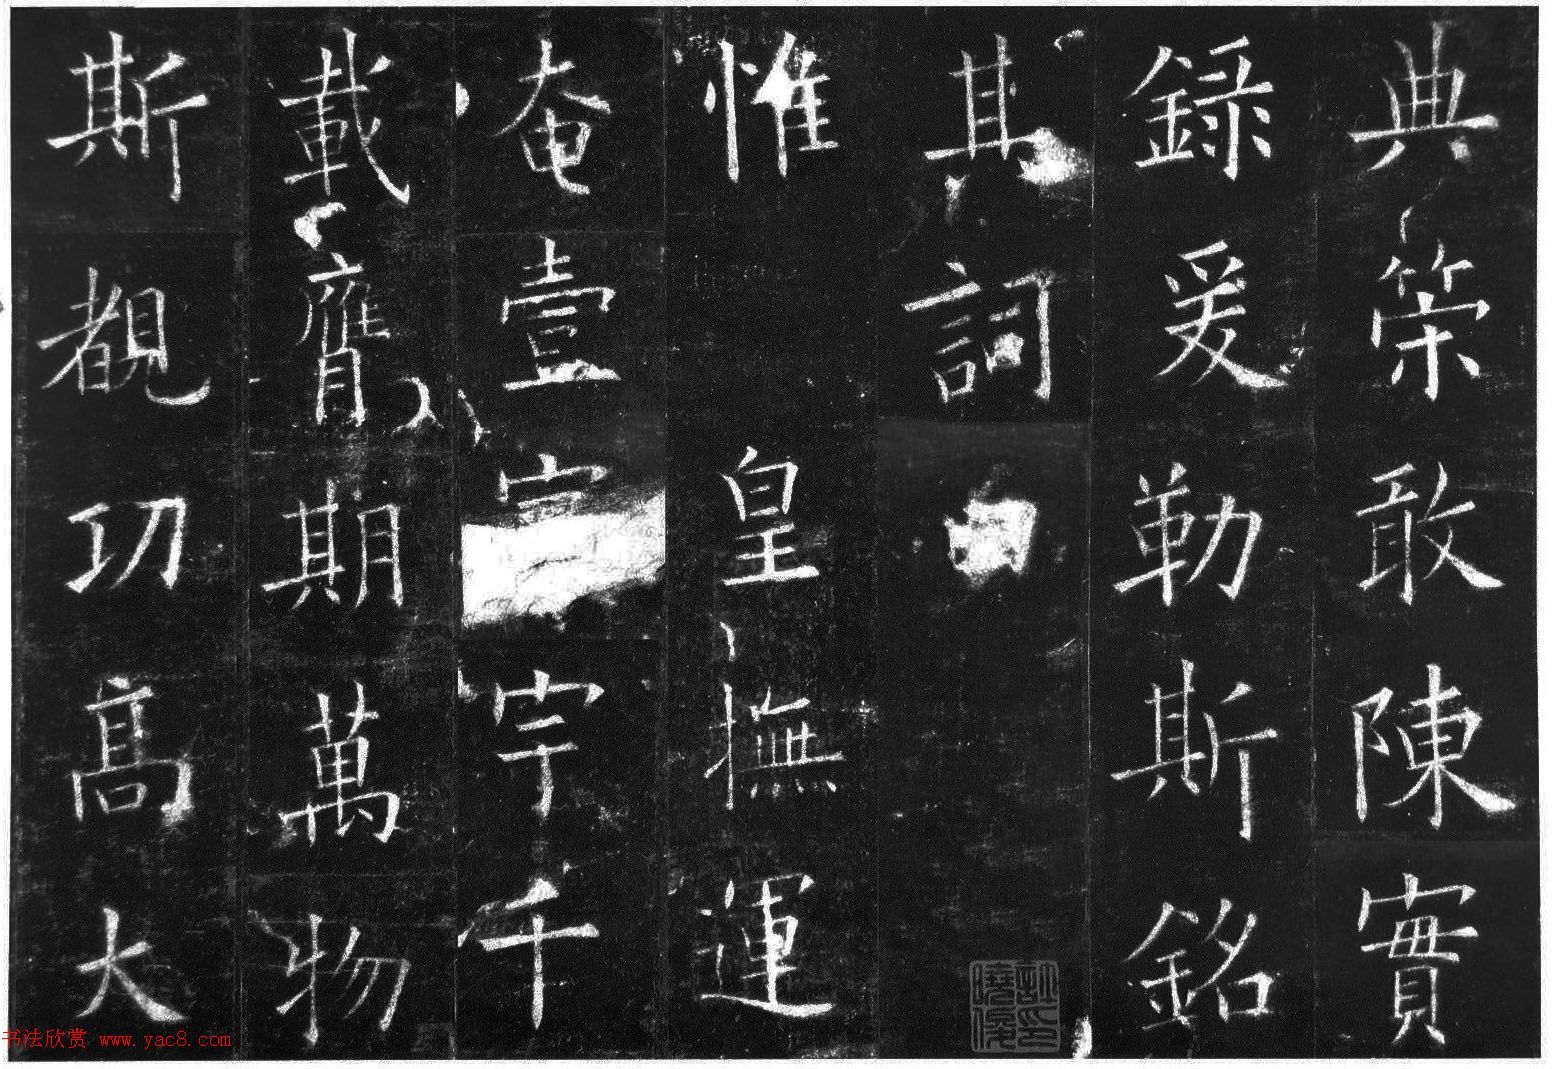 典策敢陳實
錄爰勒斯銘
其詞
惟皇撫運
奄壹寰宇千
載膺期萬物
斯覩功高大
书法欣赏 www.yac8.com